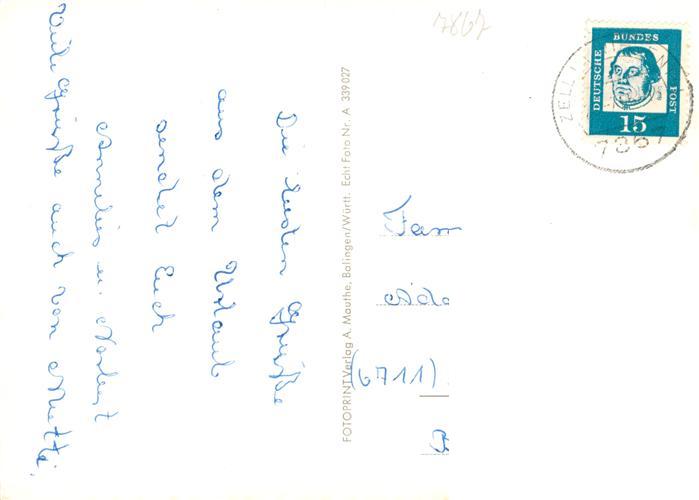 Die besten Grüße
aus dem Urlaub
sendet Euch
Annelies u. Norbert
Viele Grüße auch von Mutti.
FOTOPRINT Verlag A. Mauthe, Balingen/Württ. Echt Foto Nr. A 339 027
7867
DEUTSCHE BUNDES POST
15
ZELL
7867
Fam
(6711)